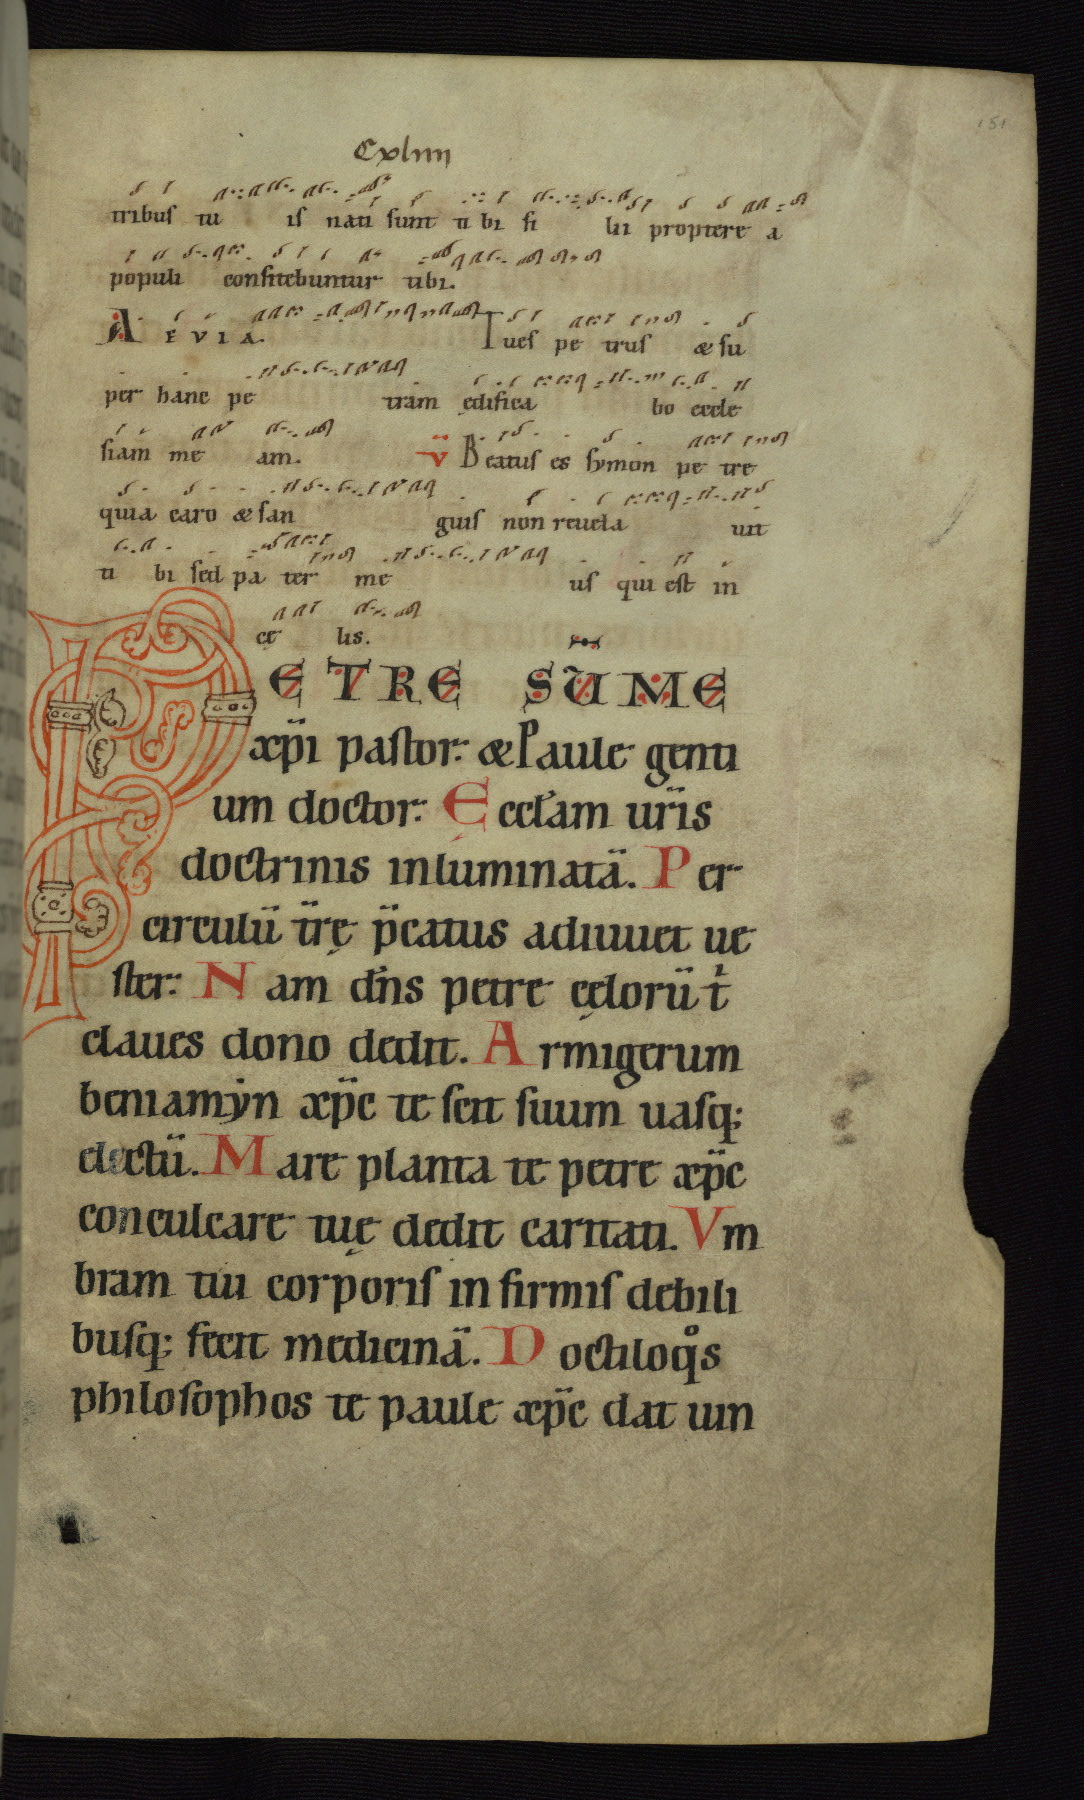 151
Cxliiii
tribus tu is nati sunt ti bi fi lii proptere a
populi confitebuntur tibi.
A E V I A. Tues pe trus & su
per hanc pe tram ędifica bo eccle
siam me am. v̈ Beatus es symon pe tre
quia caro & san guis non reuela uit
ti bi sed pa ter me us qui est in
cę lis.
PETRE SŪME
xp̄i pastor: & Paule genti
um doctor: Ęccl̄am ur̄is
doctrinis inluminatā. Per
circulū tr̄ę p̄catus adiuuet ue
ster: Nam dn̄s petre cęlorū t̄
claues dono dedit. Armigerum
beniamẏn xp̄c te scit suum uasq;
electū. Mare planta te petre xp̄c
conculcare tuę dedit caritati. Vm
bram tui corporis infirmis debili
busq; fecit medicinā. Doctiloq̊s
philosophos te paule xp̄c dat uin